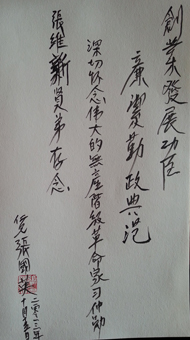 創業發展功臣
廉實勤政典范
深切怀念伟大的無產階級革命家习仲勋
張維新贤弟存念
張國
二〇一三年
十月十五日